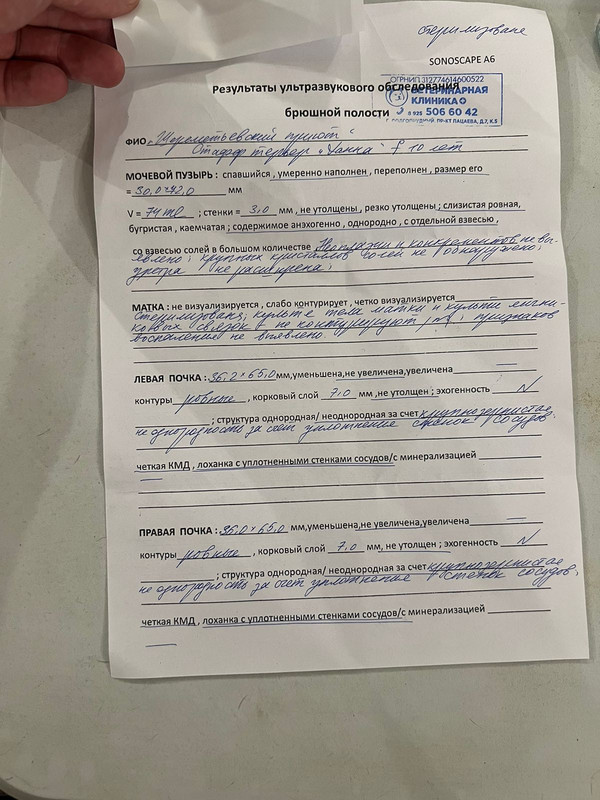 стерилизована
SONOSCAPE A6
Результаты ультразвукового обследования
брюшной полости
ОГРНИП 312774614600522
ВЕТЕРИНАРНАЯ
КЛИНИКА
8 925 506 60 42
Г. ДОЛГОПРУДНЫЙ, ПР-КТ ПАЦАЕВА, Д.7, К.5
ФИО "Шереметьевский приют"
Стафф терьер "Ханна" f 10 лет
МОЧЕВОЙ ПУЗЫРЬ : спавшийся , умеренно наполнен , переполнен , размер его
= 30,0×42,0 мм
V = 74 ml ; стенки = 3,0 мм , не утолщены , резко утолщены ; слизистая ровная,
бугристая , каемчатая ; содержимое анэхогенно , однородно , с отдельной взвесью ,
со взвесью солей в большом количестве Неоплазии и конкрементов не вы-
явлено; крупных кристаллов солей не обнаружено;
уретра не расширена;
МАТКА : не визуализируется , слабо контурирует , четко визуализируется
стерилизована; культе тела матки и культи яични-
ковых связок не контурируют ; признаков
воспаления не выявлено.
ЛЕВАЯ ПОЧКА : 36,2×65,0 мм,уменьшена,не увеличена,увеличена —
контуры ровные , корковый слой 7,0 мм ,не утолщен ; эхогенность N
; структура однородная/ неоднородная за счет крупнозернистая
неоднородность за счет уплотнения стенок сосудов.
четкая КМД , лоханка с уплотненными стенками сосудов/с минерализацией
—
ПРАВАЯ ПОЧКА : 36,0×65,0 мм,уменьшена,не увеличена,увеличена —
контуры ровные , корковый слой 7,0 мм, не утолщен ; эхогенность N
; структура однородная/ неоднородная за счет крупнозернистая
неоднородность за счет уплотнения стенок сосудов;
четкая КМД , лоханка с уплотненными стенками сосудов/с минерализацией
—